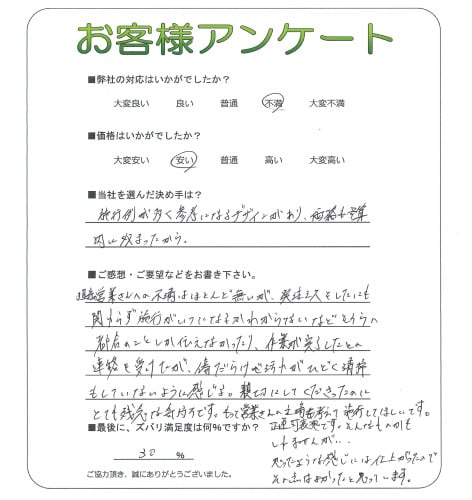 お客様アンケート
■弊社の対応はいかがでしたか？
大変良い 良い 普通 不満 大変不満
■価格はいかがでしたか？
大変安い 安い 普通 高い 大変高い
■当社を選んだ決め手は？
施行例が多く参考になるデザインがあり、価格も予算
内に収まったから。
■ご感想・ご要望などをお書き下さい。
営業さんへの不満はほとんど無いが、発注
関わらず施行がいつになるかわからないなどそちらの
都合のことしか伝えなかったり、作業が完了したとの
連絡を受けたが、傷だらけで汚れがひどく清掃
もしていないように感じる。親切にしてくださったのに
とても残念な気持ちです。もっと営業さんの立場も考えて施行してほしいです。
正直可哀想です。そんなものかも
■最後に、ズバリ満足度は何%ですか？
しれませんが…
30 %
思ったような感じには仕上がったので
それはよかったと思っています。
ご協力頂き、誠にありがとうございました。